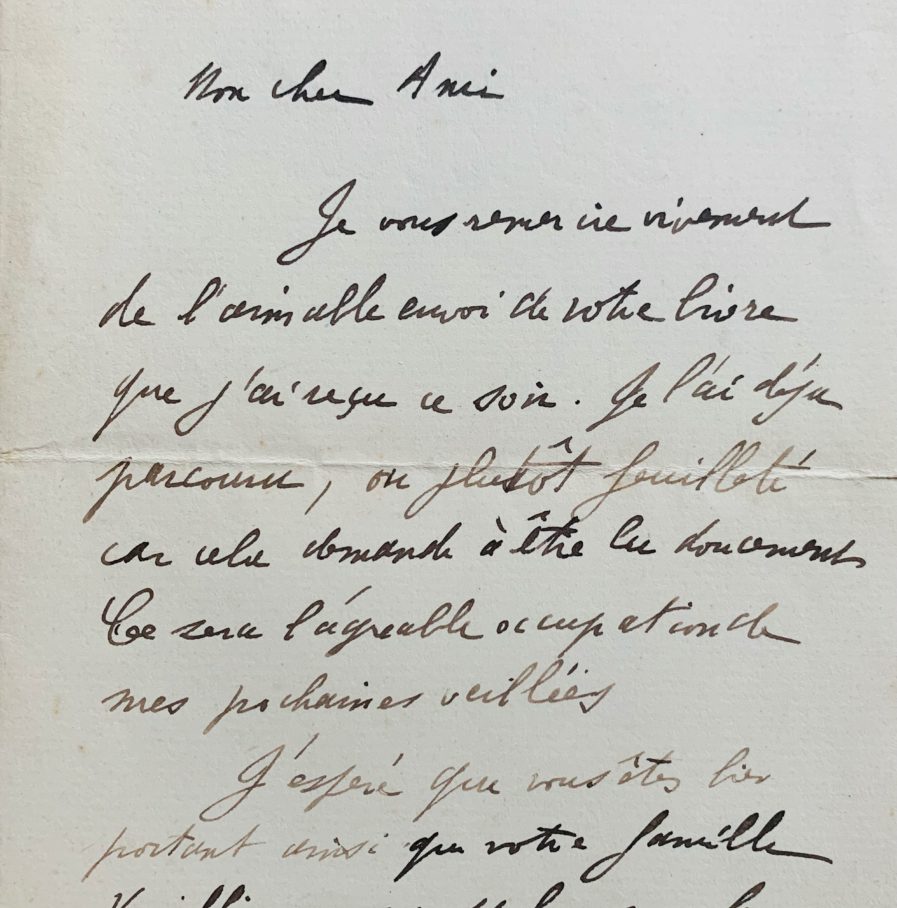 Mon cher Ami
Je vous remercie vivement
de l'aimable envoi de votre livre
que j'ai reçu ce soir. Je l'ai déjà
parcouru, ou plutôt feuilleté
car cela demande à être lu doucement
Ce sera l'agréable occupation de
mes prochaines veillées
J'espère que vous êtes bien
portant ainsi que votre famille